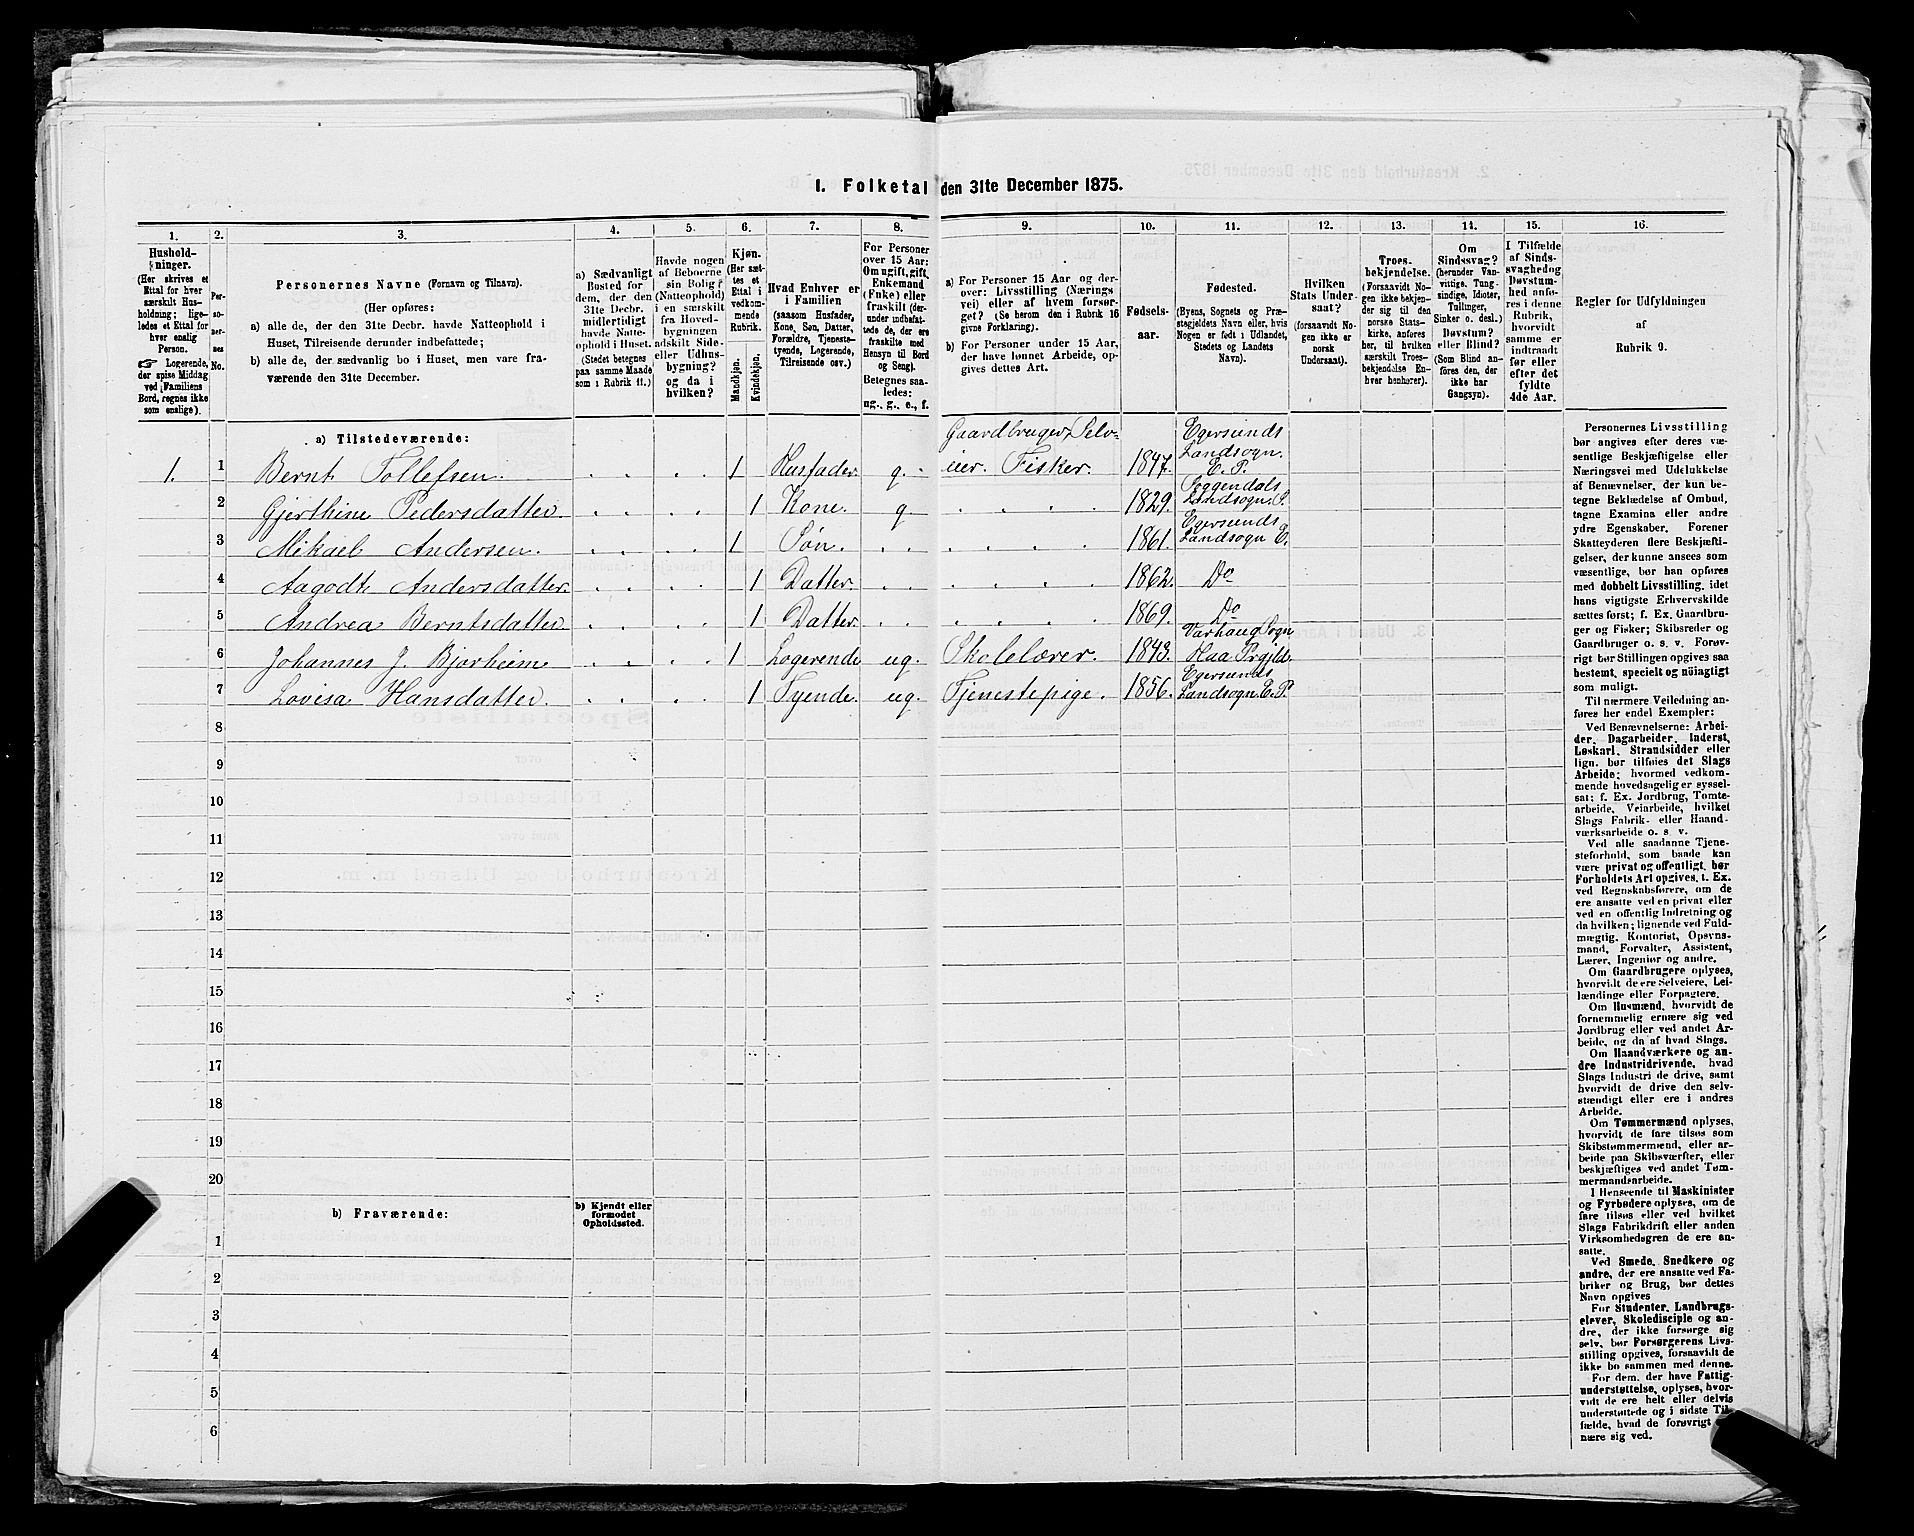 I. Folketal den 31te December 1875.
1. 2. 3. 4. 5. 6. 7. 8. 9. 10. 11. 12. 13. 14. 15. 16.
Hushold-
ninger.
(Her skrives et
Ettal for hver
særskilt Hus-
holdning; lige-
ledes et Ettal for
hver enslig
Person.
☞ Logerende,
der spise Middag
ved Familiens
Bord, regnes ikke
som enslige).
Per-
so-
ner-
nes
No.
Personernes Navne (Fornavn og Tilnavn).
(Her opføres:
a) alle de, der den 31te Decbr. havde Natteophold i
Huset, Tilreisende derunder indbefattede;
b) alle de, der sædvanlig bo i Huset, men vare fra-
værende den 31te December.
a) Sædvanligt
Bosted for
dem, der den
31te Decbr.
midlertidigt
havde Natte-
ophold i Huset.
(Stedet betegnes
paa samme Maade
som i Rubrik 11.)
Havde nogen
af Beboerne
sin Bolig
(Natteophold)
i en særskilt
fra Hoved-
bygningen
adskilt Side-
eller Udhus-
bygning?
og da i
hvilken?
Kjøn.
(Her sæt-
tes et
Ettal i
vedkom-
mende
Rubrik.
Mandkjøn.
Kvindekjøn.
Hvad Enhver er
i Familien
(saasom Husfader,
Kone, Søn, Datter,
Forældre, Tjeneste-
tyende, Logerende,
Tilreisende osv.)
For Personer
over 15 Aar:
Om ugift, gift,
Enkemand
(Enke) eller
fraskilt (der-
under indbefat-
tede de, der ere
fraskilte med
Hensyn til Bord
og Seng).
Betegnes saa-
ledes:
ug., g., e., f.
a) For Personer 15 Aar og der-
over: Livsstilling (Nærings
vei) eller af hvem forsør-
get? (Se herom den i Rubrik 16
givne Forklaring).
b) For Personer under 15 Aar,
der have lønnet Arbeide, op-
gives dettes Art.
Fødsels-
aar.
Fødested.
(Byens, Sognets og Præ-
stegjeldets Navn eller, hvis
Nogen er født i Udlandet,
Stedets og Landets
Navn).
Hvilken
Stats Under-
saat?
(forsaavidt No-
gen ikke er
norsk
Undersaat).
Troes-
bekjendelse.
(Forsaavidt No-
gen ikke bekjen-
der sig til den
norske Stats-
kirke, anføres
her, til hvilken
særskilt Troes-
bekjendelse En-
hver henhører).
Om
Sindssvag?
(herunder Van-
vittige, Tung-
sindige, Idioter,
Tullinger,
Sinker o. desl.)
Døvstum?
eller Blind?
(Som Blind an-
føres den, der
ikke har
Gangsyn).
I Tilfælde
af Sinds-
svaghed og
Døvstum-
hed anfø-
res i denne
Rubrik,
hvorvidt
samme er
indtraadt
før eller
efter det
fyldte
4de Aar.
Regler for Udfyldningen
af
Rubrik 9.
a) Tilstedeværende:
1. 1 Bernt Tollefsen. 1 Husfader g. Gaardbruger, Selv-
eier. Fisker. 1847. Egersunds
Landsogn.
E. P.
2 Gjerthine Pedersdatter. 1 Kone. g. 1829. Soggendals
Landsogn. P.
3 Mikael Andersen. 1 Søn. 1861. Egersunds
Landsogn E.
4 Aagodt Andersdatter. 1 Datter. 1862. Do
5 Andrea Berntsdatter. 1 Datter. 1869. Do
6 Johannes J. Bjorheim 1 Logerende ug. Skolelærer. 1843. Varhaug Sogn
Haa Prgjld.
7 Lovisa Hansdatter 1 Tyende. ug. Tjenestepige. 1856. Egersunds
Landsogn. E. P.
8
9
10
11
12
13
14
15
16
17
18
19
20
b) Fraværende:
b) Kjendt eller
formodet
Opholdssted.
1
2
3
4
5
6
Personernes Livsstilling
bør angives efter deres væ-
sentlige Beskjæftigelse eller
Næringsvei med Udelukkelse
af Benævnelser, der kun be-
tegne Beklædelse af Ombud,
tagne Examina eller andre
ydre Egenskaber. Forener
Skatteyderen flere Beskjæfti-
gelser, der kunne ansees som
væsentlige, bør han opføres
med dobbelt Livsstilling, idet
hans vigtigste Erhvervskilde
sættes først; f. Ex. Gaardbru-
ger og Fisker; Skibsreder og
Gaardbruger o. s. v. Forøv-
rigt bør Stillingen opgives saa
bestemt, specielt og nøiagtigt
som muligt.
Til nærmere Veiledning an-
føres her endel Exempler:
Ved Benævnelserne: Arbei-
der, Dagarbeider, Inderst,
Løskarl, Strandsidder eller
lign. bør tilføies det Slags
Arbeide; hvormed vedkom-
mende hovedsagelig er syssel-
sat; f. Ex. Jordbrug, Tomte-
arbeide, Veiarbeide, hvilket
Slags Fabrik- eller Haand-
værksarbeide o. s. v.
Ved alle saadanne Tjene-
steforhold, som baade kan
være privat og offentligt, bør
Forholdets Art opgives, t. Ex.
ved Regnskabsførere, om de
ere ansatte ved en privat eller
ved en offentlig Indretning og
da hvilken; lignende ved Fuld-
mægtig, Kontorist, Opsyns-
mand, Forvalter, Assistent,
Lærer, Ingeniør og andre.
Om Gaardbrugere oplyses,
hvorvidt de ere Selveiere, Lei-
lændinge eller Forpagtere.
Om Husmænd, hvorvidt de
fornemmelig ernære sig ved
Jordbrug eller ved andet Ar-
beide, og da af hvad Slags.
Om Haandværkere og an-
dre Industridrivende, hvad
Slags Industri de drive, samt
hvorvidt de drive den selv-
stændigt eller ere i andres
Arbeide.
Om Tømmermænd oplyses,
hvorvidt de fare tilsøs som
Skibstømmermænd, eller ar-
beide paa Skibsværfter, eller
beskjæftiges ved andet Tøm-
mermandsarbeide.
I Henseende til Maskinister
og Fyrbødere oplyses, om de
fare tilsøs eller ved hvilket
Slags Fabrikdrift eller anden
Virksomhedsgren de ere an-
satte.
Ved Smede, Snedkere og
andre, der ere ansatte ved Fa-
briker og Brug, bør dettes
Navn opgives
For Studenter, Landbrugs-
elever, Skoledisciple og an-
dre, der ikke forsørge sig
selv, bør Forsørgerens Livs-
stilling opgives, forsaavidt de
ikke bo sammen med denne.
For dem, der have Fattig-
understøttelse, oplyses, hvor-
vidt de ere helt eller delvis
understøttede og i sidste Til-
fælde, hvad de forøvrigt er-
nære sig ved.